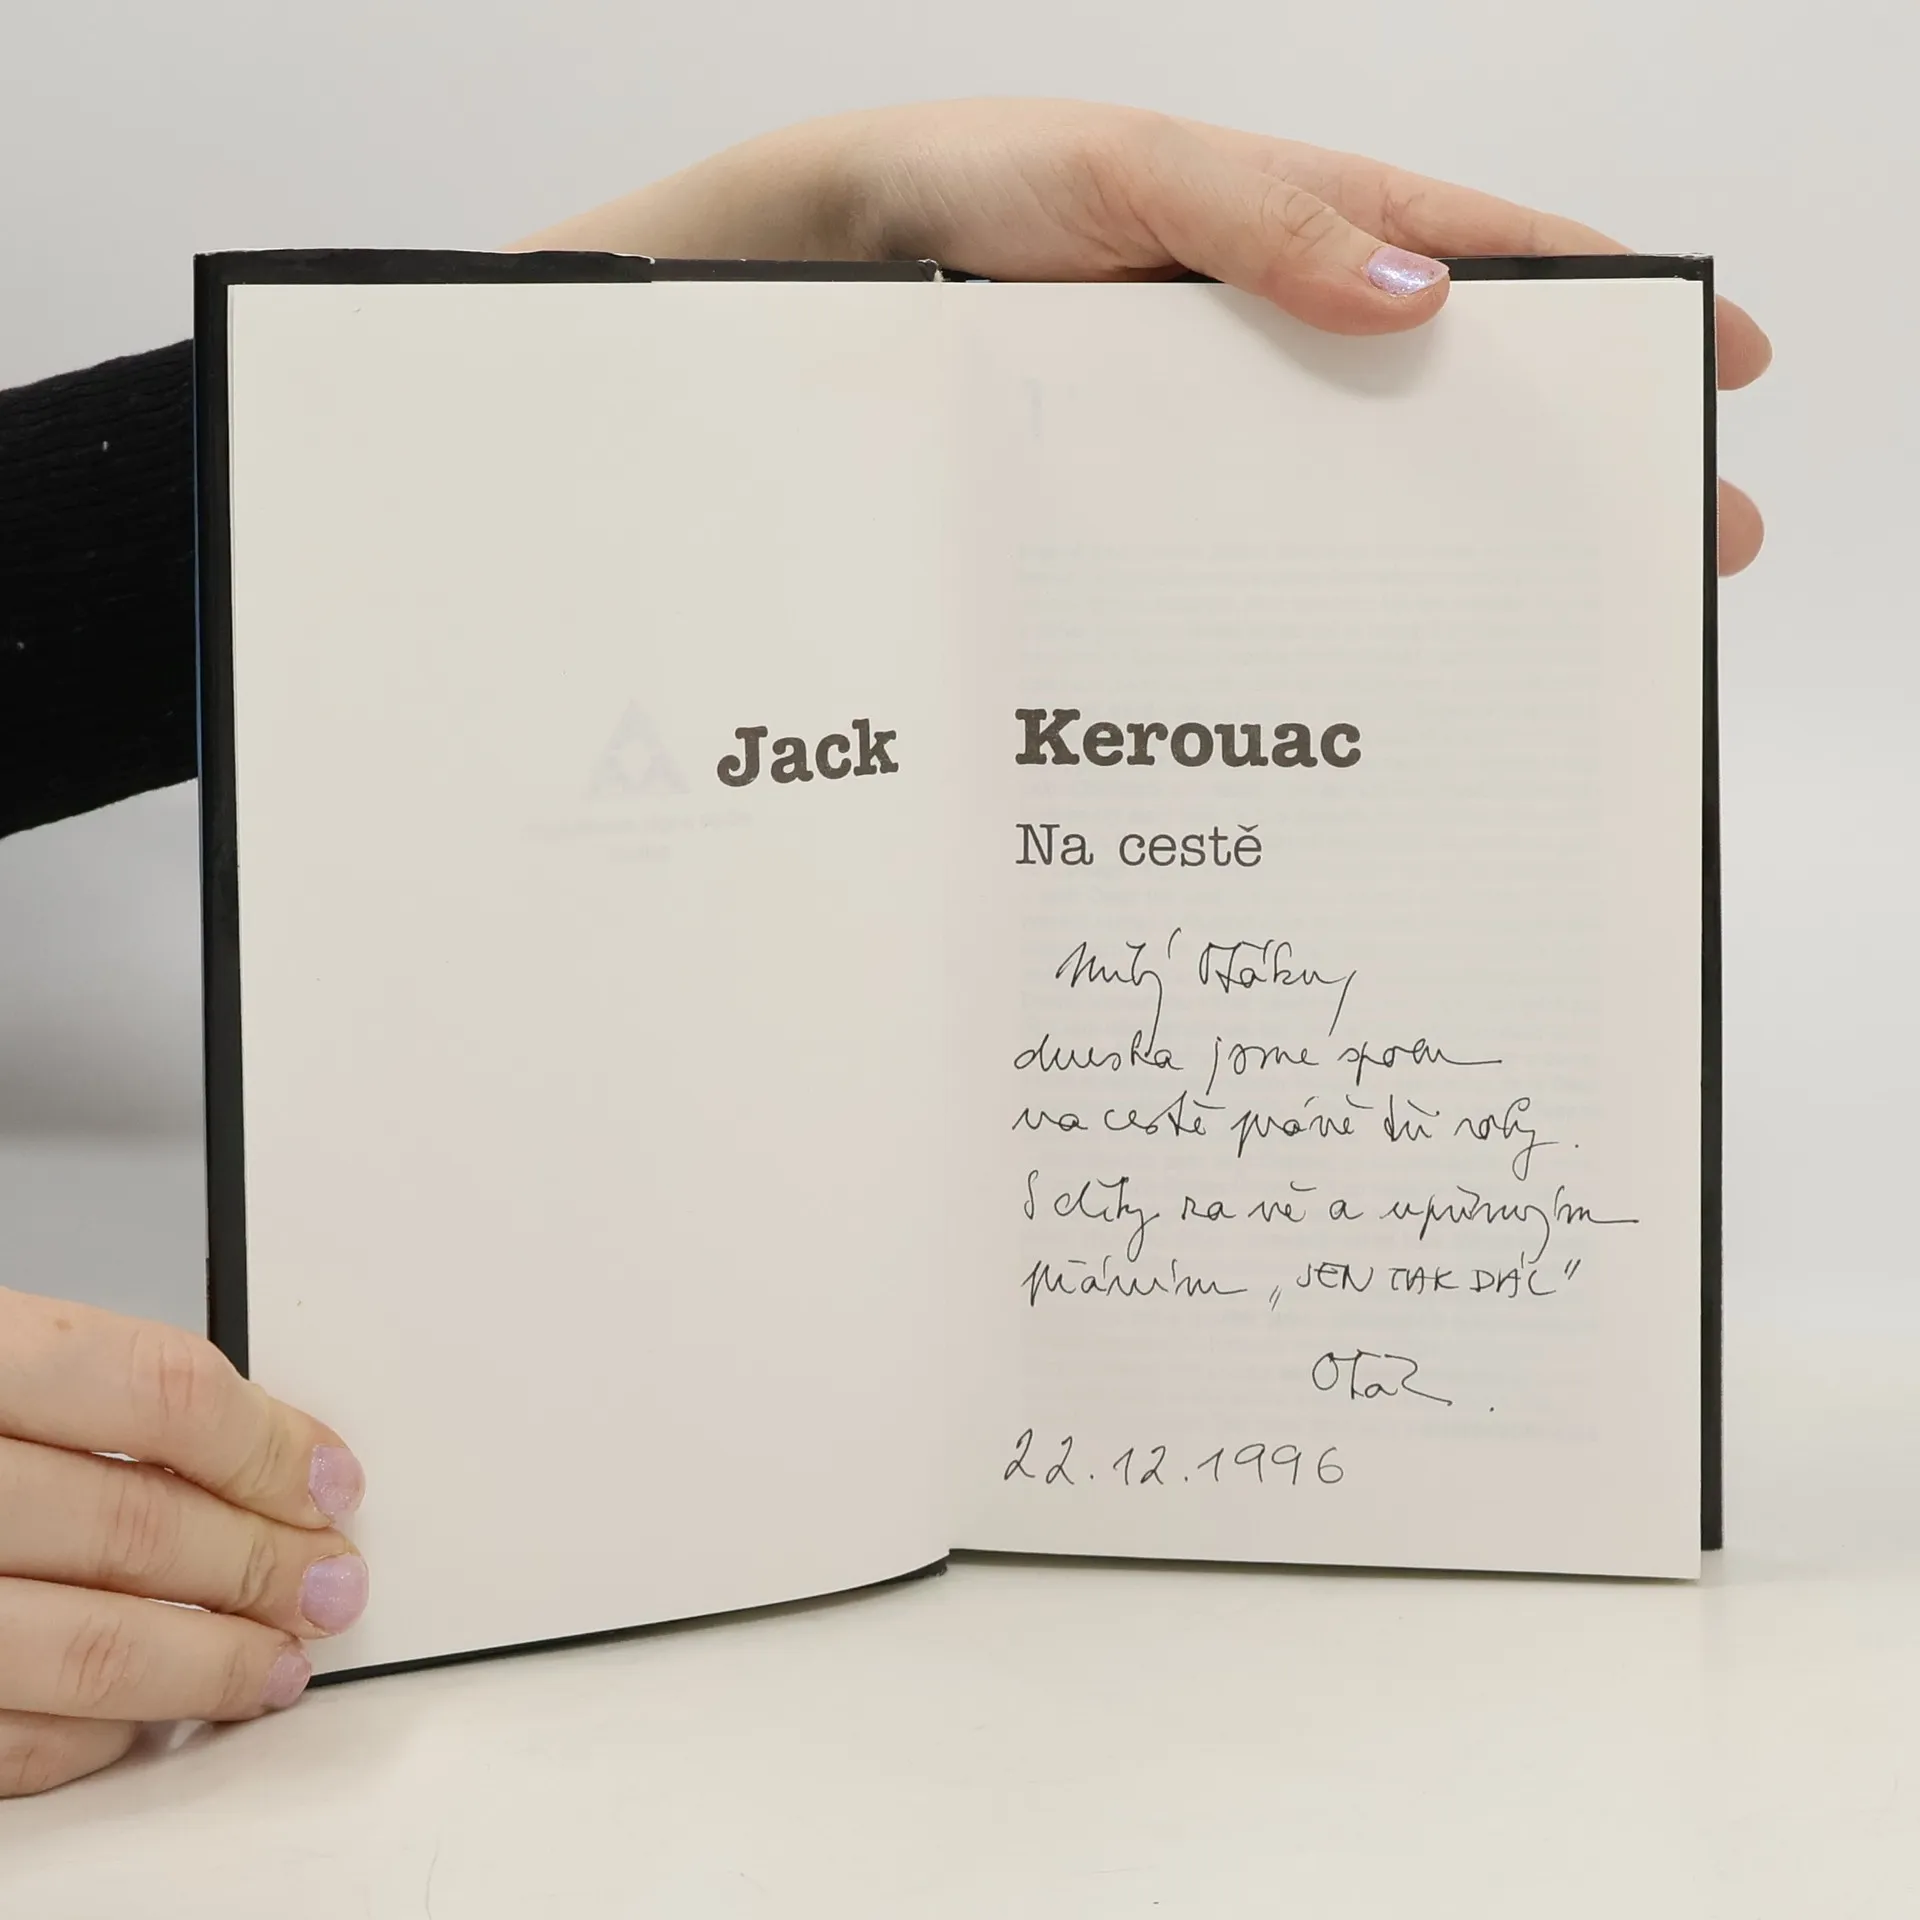 Jack Kerouac
Na cestě
Milý Otáku,
dneska jsme spolu
na cestě právě tři roky.
S díky za ně a upřímným
přáním „JEN TAK DÁL"
Ota
22.12.1996